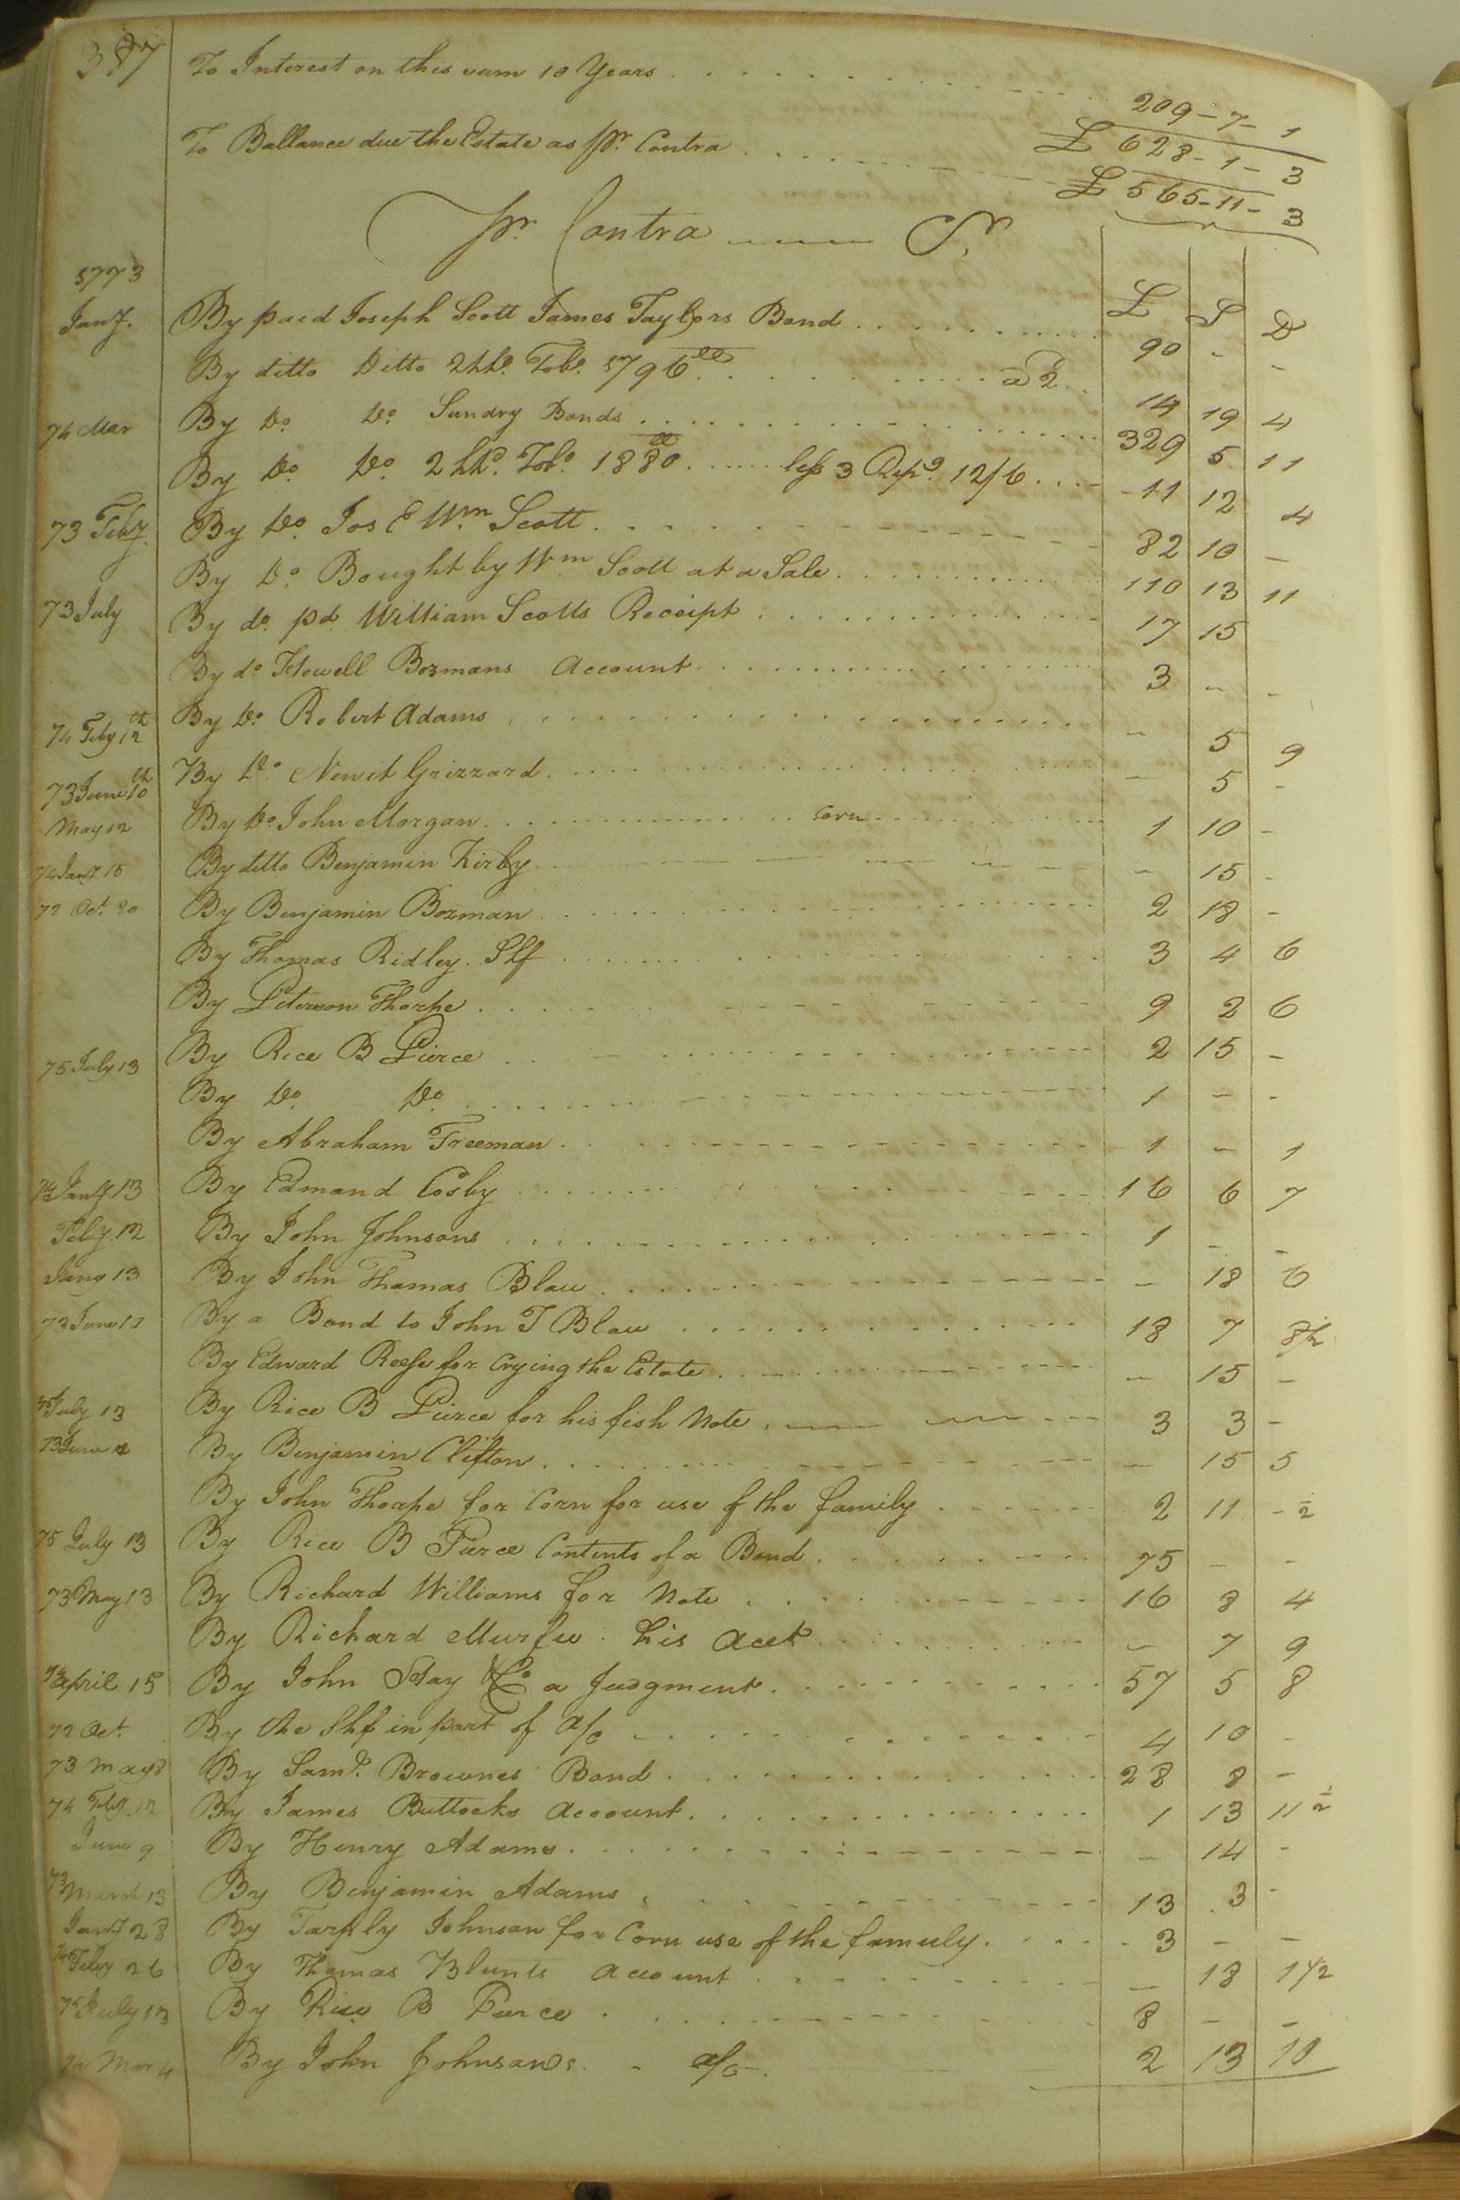 387 To Interest on this sum 10 Years 209-7-1
£ 628-1-3
To Ballance due the Estate as pr. Contra £ 565-11-3
Pr. Contra Cr.
1773 £ S D
Jany. By paid Joseph Scott James Taylors Bond 90 - -
By ditto Ditto 2hhd. Tobo. 1796 ll a 2 14 19 4
74 Mar By Do. Do. Sundry Bonds 329 5 11
By Do. Do. 2 hhd. Tobo. 1880 ll less 3 12/6 11 12 4
73 Feby. By Do. Jos & Wm Scott 82 10 -
By Do. Bought by Wm Scott at a Sale 110 13 11
73 July By do. pd. William Scotts Receipt 17 15
By do Howell Bozmans Account 3 - -
By Do. Robert Adams - 5 9
74 Feby 12th By Do. Newit Grizzard - 5 -
73 June 10th By Do John Morgan corn 1 10 -
May 12 By ditto Benjamin Kirby - 15 -
74 Jany 15 By Benjamin Bozman 2 18 -
72 Oct. 20 By Thomas Ridley. Shf 3 4 6
By Peterson Thorpe 9 2 6
By Rice B Pierce 2 15 -
75 July 13 By Do. Do. 1 - -
By Abraham Freeman 1 - 1
74 Jany 13 By Edmand Cosby 16 6 7
Feby. 12 By John Johnsons 1 - -
Jany 13 By John Thomas Blow - 18 6
73 June 10 By a Bond to John T Blow 18 7 8½
By Edward Reese for Crying the Estate - 15 -
75 July 13 By Rice B Pierce for his fish Note 3 3 -
73 June By Benjamin Clifton - 15 5
By John Thorpe for Corn for use of the family 2 11 - ½
75 July 13 By Rice B Pierce Contents of a Bond 75 - -
73 May 13 By Richard Williams for Note 16 8 4
By Richard Murfee his Acct - 7 9
April 15 By John Hay & Co a Judgment 57 5 8
72 Oct. By the Shf in part of a/c 4 10 -
73 May 8 By Saml. Brownes Bond 28 8 -
74 Feby. 12 By James Buttocks account 1 13 11½
June 9 By Henry Adams - 14 -
73 March 13 By Benjamin Adams 13 3 -
Jany 28 By Johnson for Corn use of the family 3 - -
Feby 26 By Thomas Blunts account - 18 1½
75 July 13 By Rice B Pierce 8 - -
74 Mar 4 By John Johnsons a/c 2 13 10